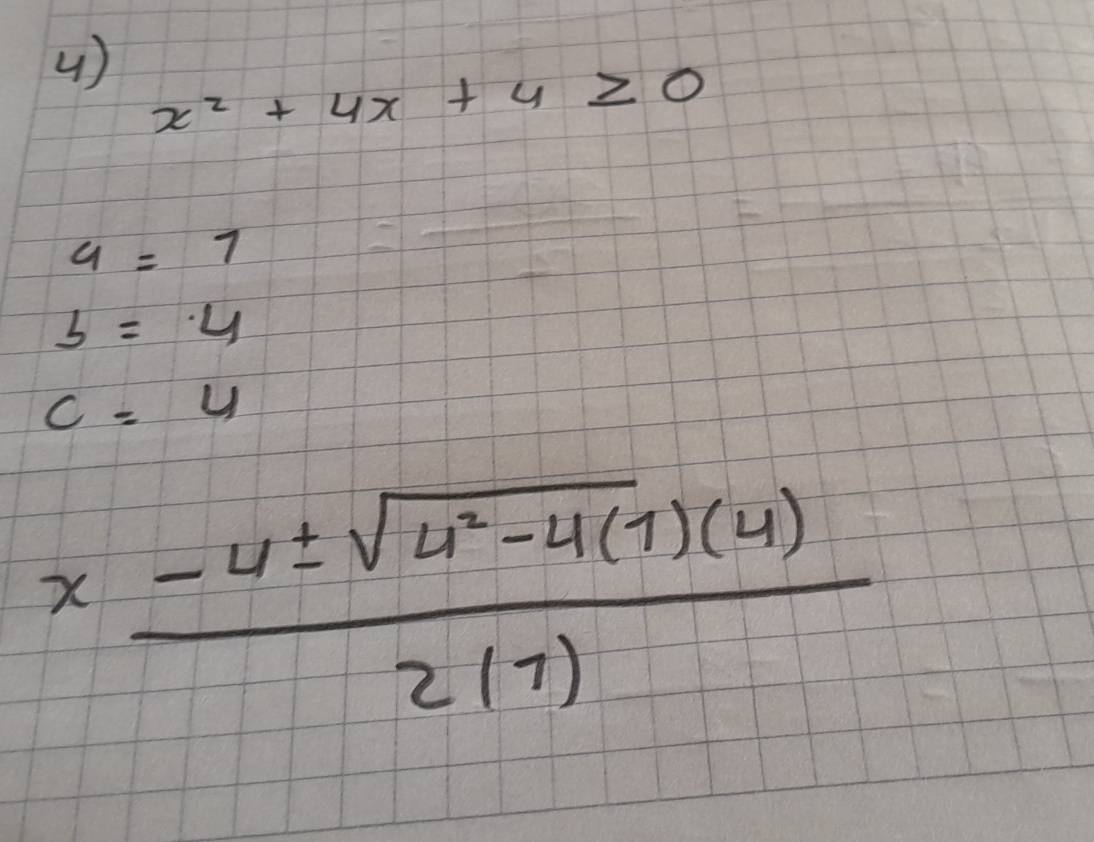 4)
x² + 4x + 4 ≥ 0
a = 1
b = 4
c = 4
x -4 ± √4² - 4(1)(4)
2(1)